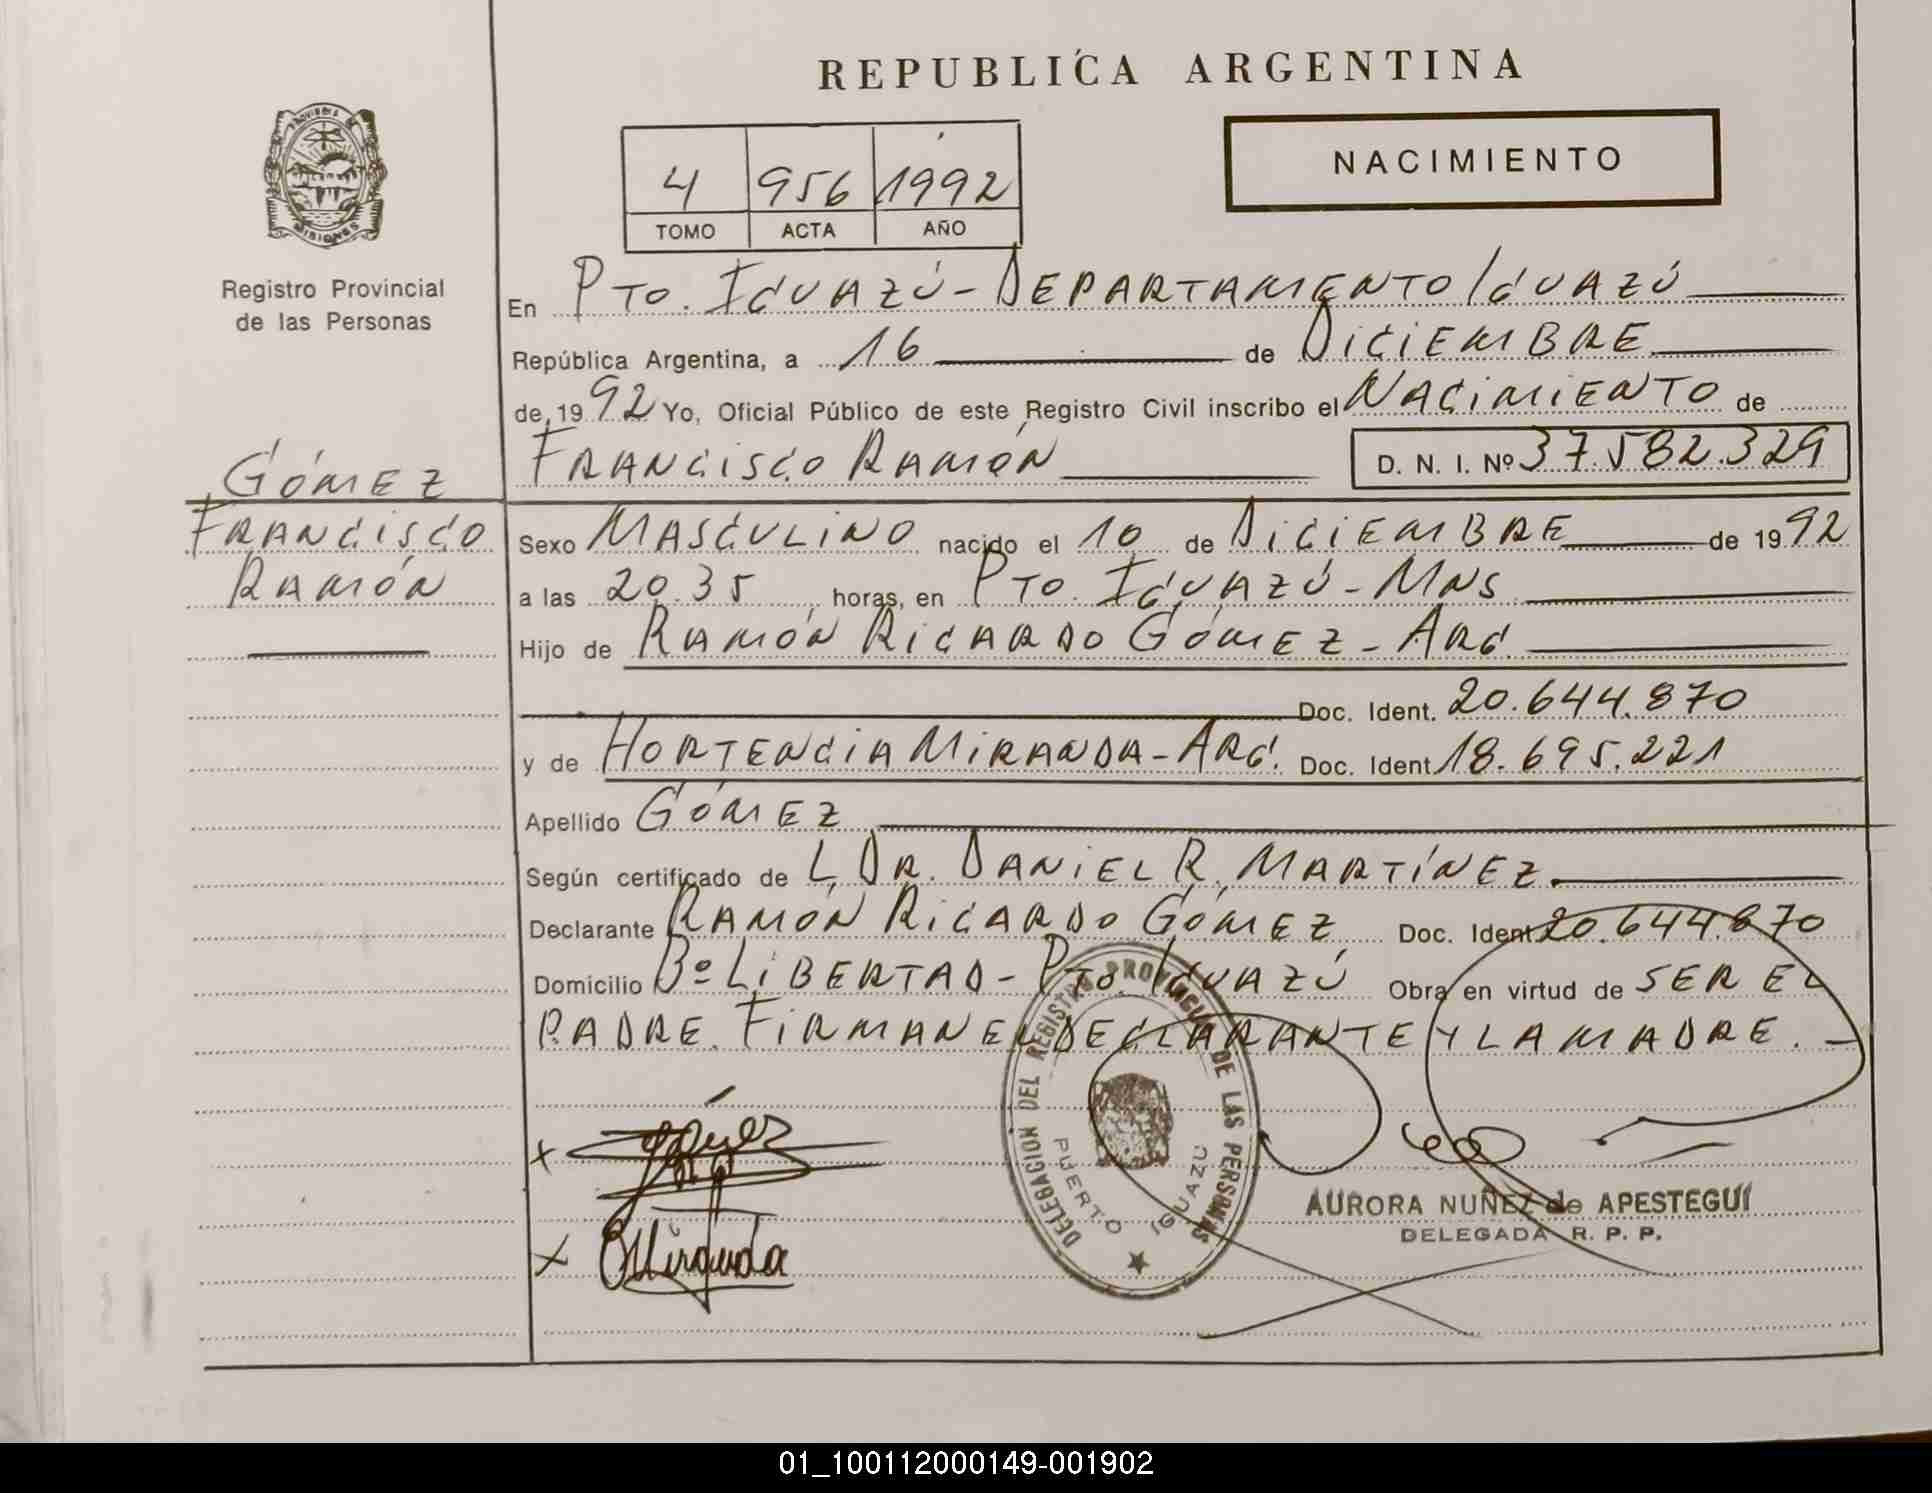 REPUBLICA ARGENTINA
PROVINCIA DE
MISIONES
Registro Provincial
de las Personas
4 956 1992
TOMO ACTA AÑO
NACIMIENTO
En PTO. IGUAZÚ - DEPARTAMENTO IGUAZÚ
República Argentina, a 16 de DICIEMBRE
de 1992 Yo, Oficial Público de este Registro Civil inscribo el NACIMIENTO de
FRANCISCO RAMÓN D. N. I. Nº 37.582.329
GÓMEZ
FRANCISCO
RAMÓN
Sexo MASCULINO nacido el 10 de DICIEMBRE de 1992
a las 20.35 horas, en PTO. IGUAZÚ - MNS
Hijo de RAMÓN RICARDO GÓMEZ - ARG.
Doc. Ident. 20.644.870
y de HORTENCIA MIRANDA - ARG. Doc. Ident 18.695.221
Apellido GÓMEZ
Según certificado de L. DR. DANIEL R. MARTÍNEZ.
Declarante RAMÓN RICARDO GÓMEZ Doc. Ident 20.644.870
Domicilio Bº LIBERTAD - PTO. IGUAZÚ Obra en virtud de SER EL
PADRE. FIRMAN EL DECLARANTE Y LA MADRE.
DELEGACION DEL REGISTRO PROVINCIAL DE LAS PERSONAS
PUERTO IGUAZU
x Gómez
x Miranda
AURORA NUÑEZ de APESTEGUÍ
DELEGADA R. P. P.
01_100112000149-001902